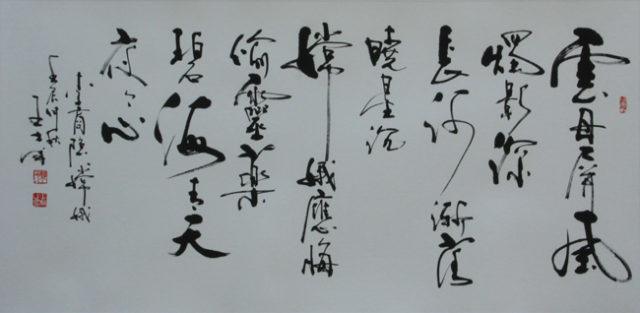 雲母屏風
燭影深
長河漸落
曉星沉
嫦娥應悔
偷靈藥
碧海青天
夜々心
李商隱嫦娥
壬辰仲秋